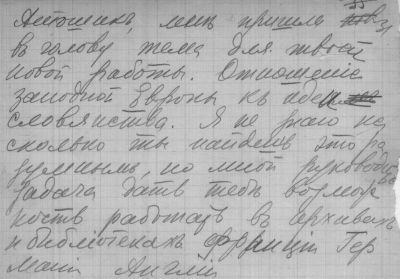 Антошикъ, мнѣ пришла
въ голову тема для твоей
новой работы. Отношеніе
западной Европы къ идеи
словянства. Я не знаю на
сколько ты найдешь это ра
зумнымъ, но мной руководит
задача дать тебѣ возмож
ность работать въ архивахъ
и библіотекахъ Франціи Гер
маніи Англіи